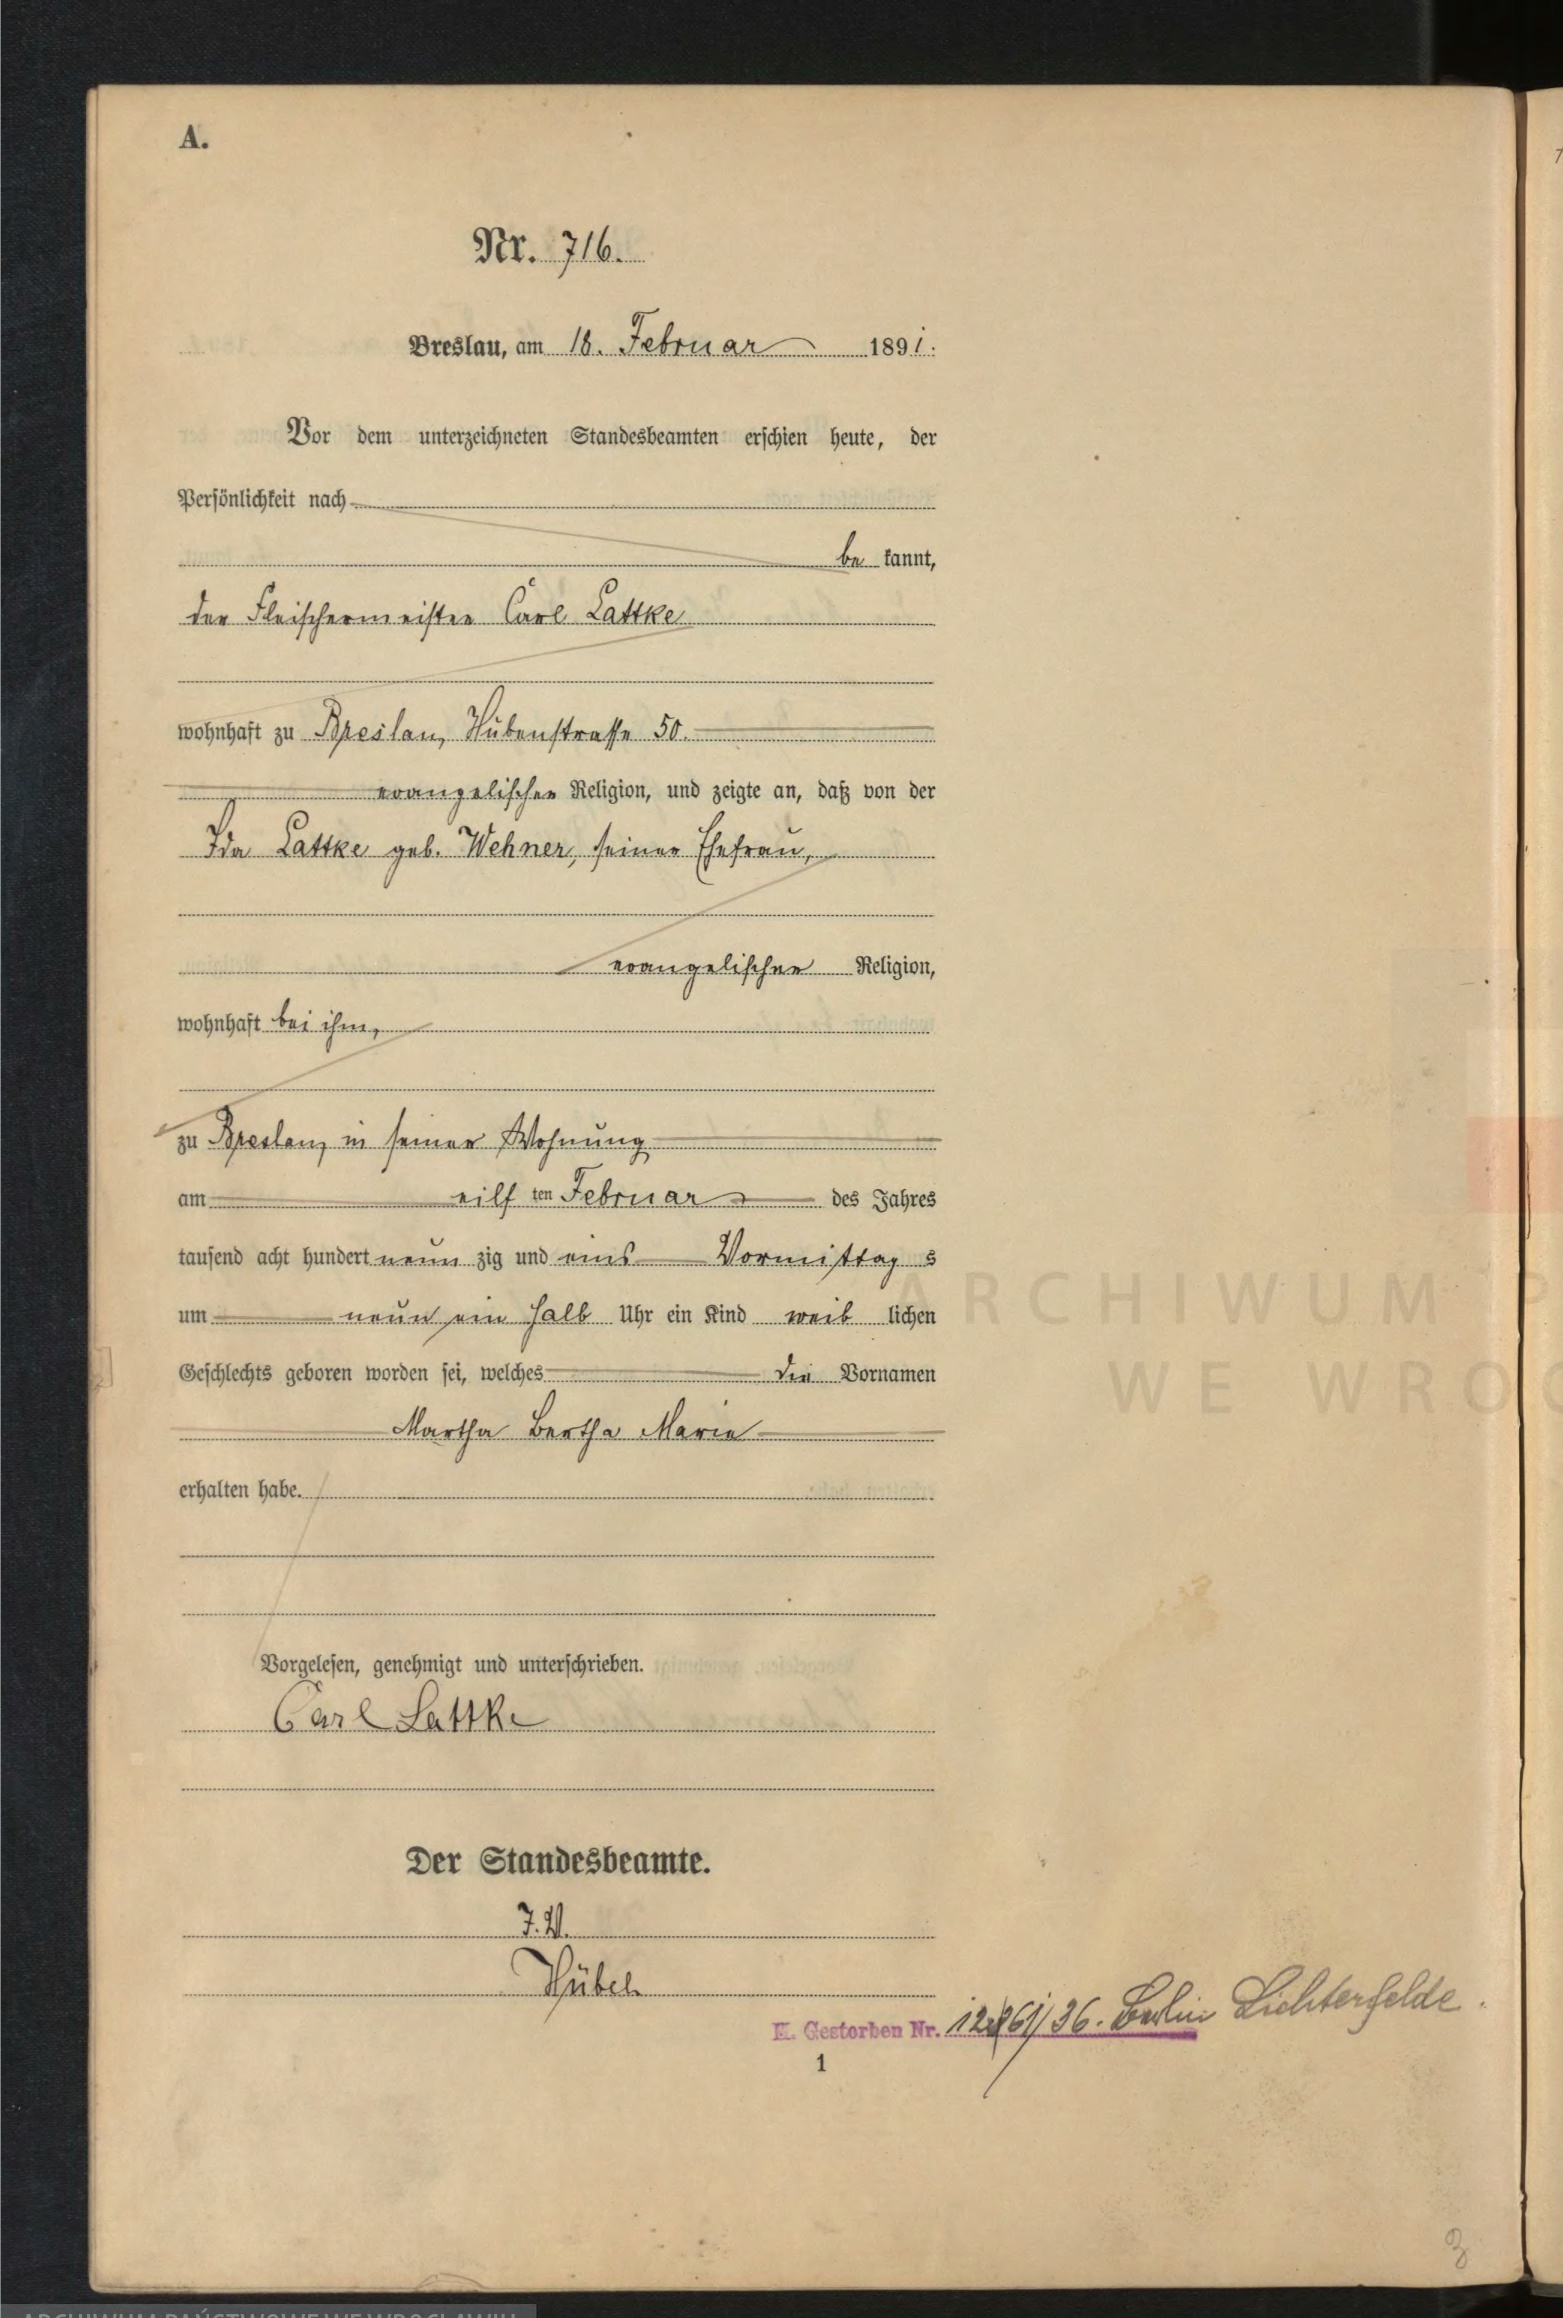 A.
Nr. 716.
Breslau, am 18. Februar 1891.
Vor dem unterzeichneten Standesbeamten erschien heute, der
Persönlichkeit nach
be kannt,
der Fleischermeister Carl Lattke
wohnhaft zu Breslau, Hubenstrasse 50.
evangelischer Religion, und zeigte an, daß von der
Ida Lattke geb. Wehner, seiner Ehefrau,
evangelischer Religion,
wohnhaft bei ihm,
zu Breslau, in seiner Wohnung
am eilf ten Februar des Jahres
tausend acht hundert neun zig und eins Vormittag s
um neun ein halb Uhr ein Kind weib lichen
Geschlechts geboren worden sei, welches die Vornamen
Martha Bertha Marie
erhalten habe.
Vorgelesen, genehmigt und unterschrieben.
Carl Lattke
Der Standesbeamte.
J.V.
Hübel
Gestorben Nr. /36. Berlin Lichterfelde.
1
3
ARCHIWUM P
WE WROC
ARCHIWUM PAŃSTWOWE WE WROCŁAWIU